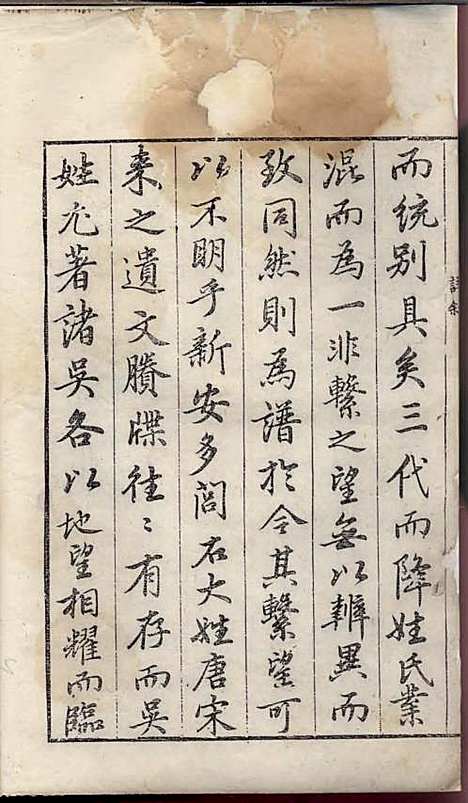 而統別具矣三代而降姓氏業
混而為一非繫之望無以辨異而
致同然則為譜於今其繫望可
以不明乎新安多閥右大姓唐宋
來之遺文賸牒往〻有存而吳
姓尤著諸吳各以地望相耀而臨